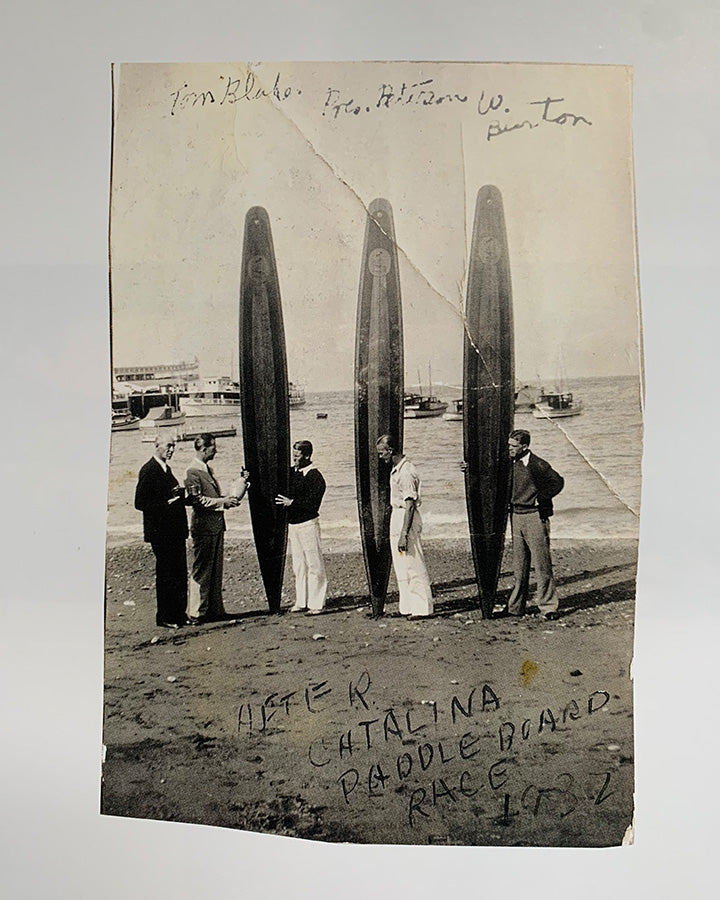 Tom Blake. Pres. Peterson W.
Burton
AFTER
CATALINA
PADDLE BOARD
RACE
1932